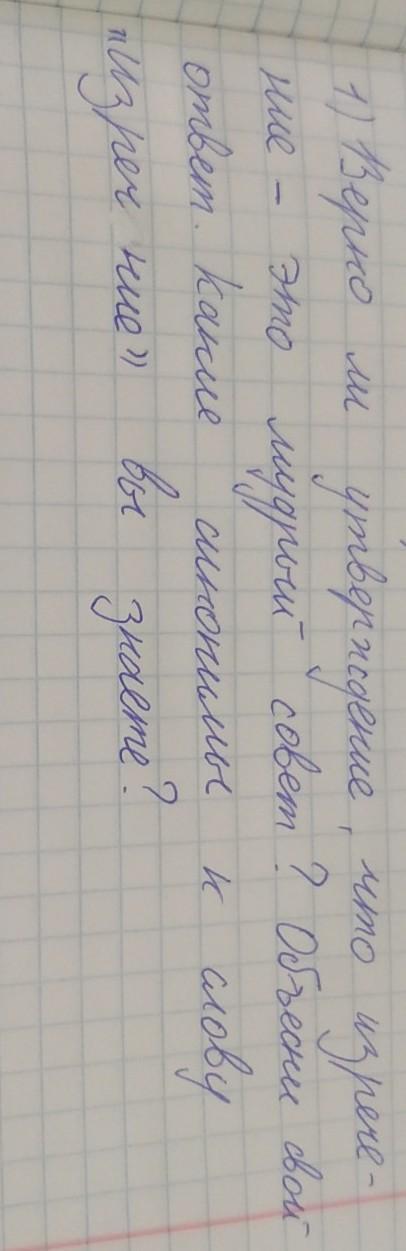 1) Верно ли утверждение, что изрече-
ние - это мудрый совет? Объесни свой
ответ. Какие синонимы к слову
"изреч ние" вы знаете?